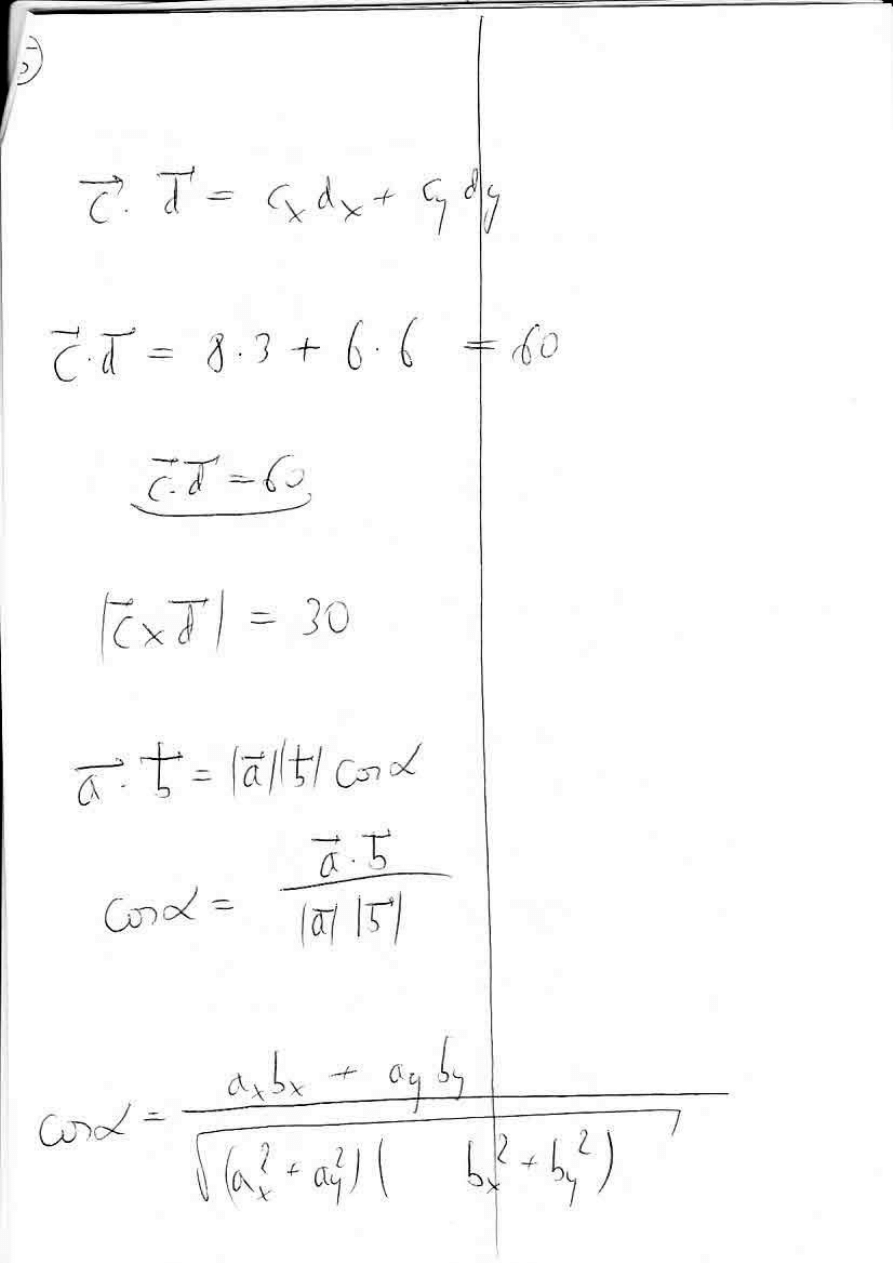 c⃗ · d⃗ = cₓdₓ + c_y d_y
c⃗ · d⃗ = 8·3 + 6·6 = 60
c⃗ · d⃗ = 60
|c⃗ × d⃗| = 30
a⃗ · b⃗ = |a⃗||b⃗| cos α
cos α = (a⃗ · b⃗) / (|a⃗| |b⃗|)
cos α = (aₓbₓ + a_y b_y) / √((aₓ² + a_y²)(bₓ² + b_y²))